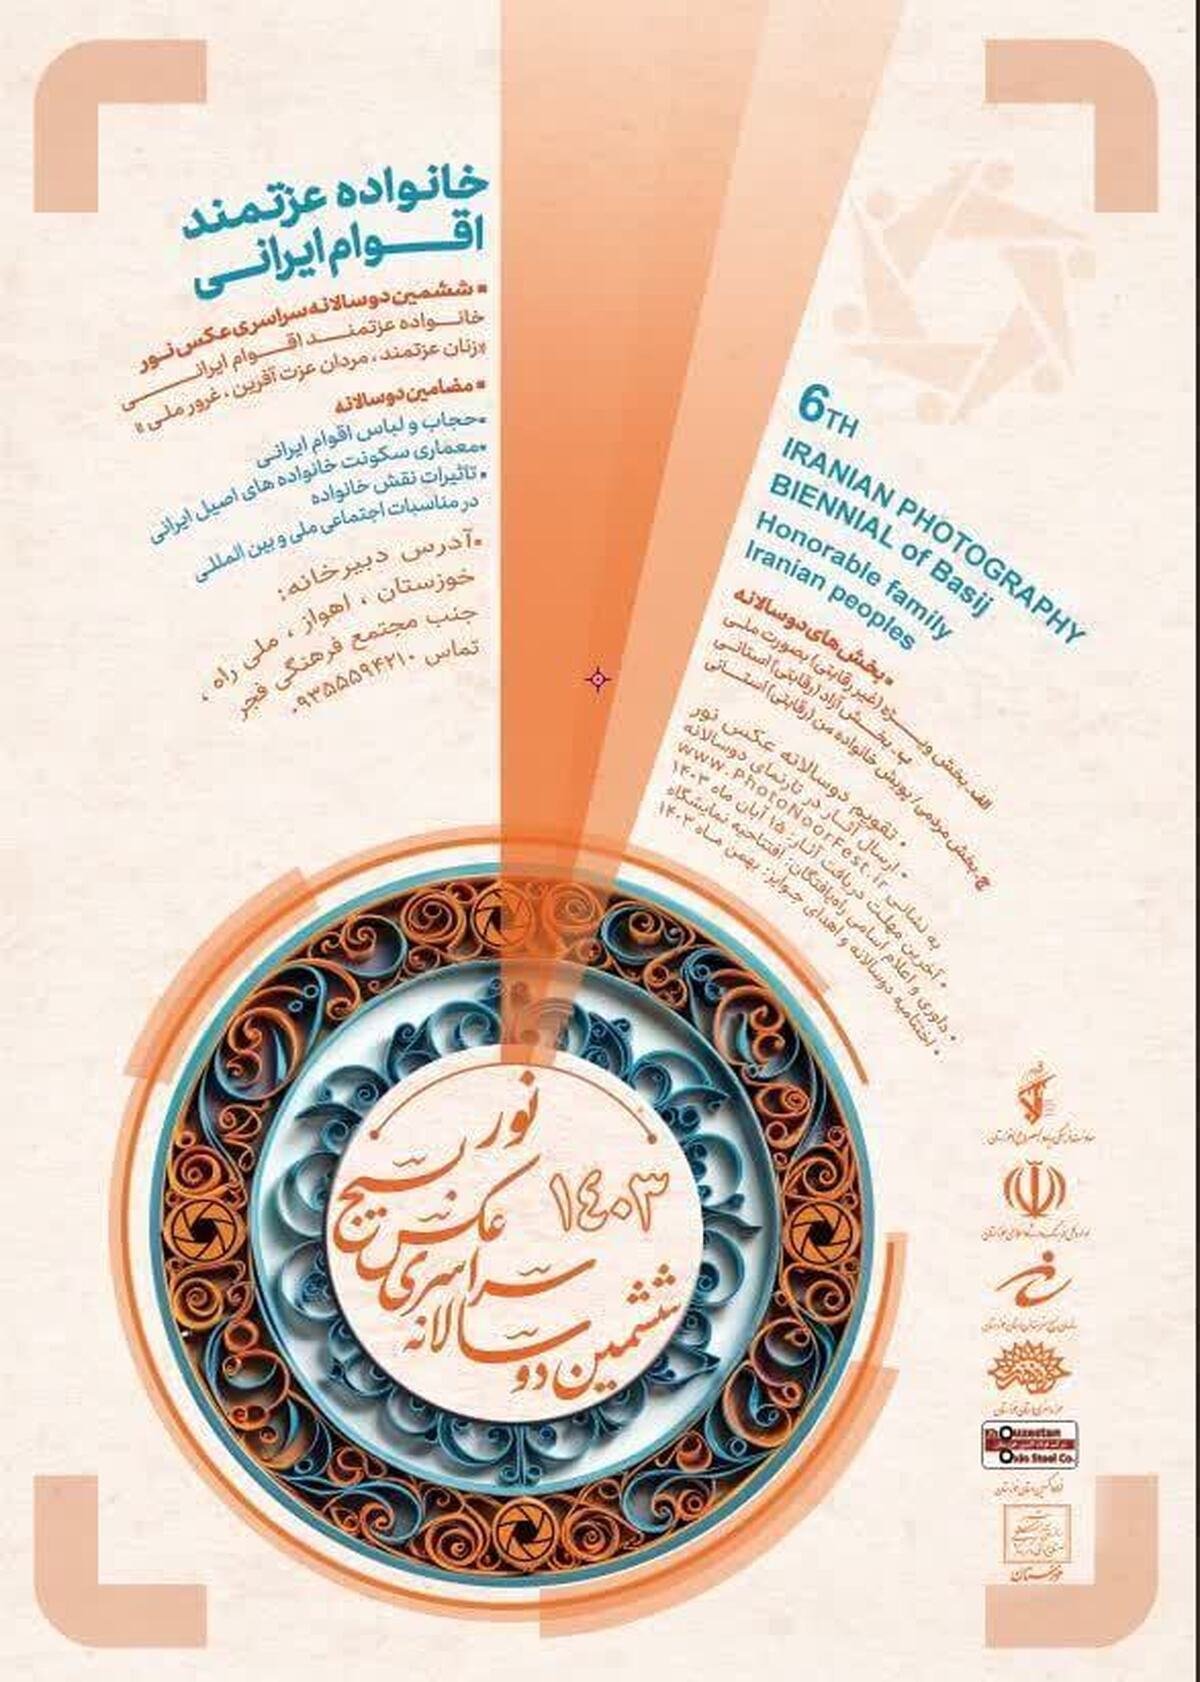 خانواده عزتمند
اقوام ایرانی
▪ ششمین دوسالانه سراسری عکس نور
خانواده عزتمند اقوام ایرانی
«زنان عزتمند، مردان عزت آفرین، غرور ملی»
▪ مضامین دوسالانه
•حجاب و لباس اقوام ایرانی
•معماری سکونت خانواده های اصیل ایرانی
•تاثیرات نقش خانواده
در مناسبات اجتماعی ملی و بین المللی
•آدرس دبیرخانه:
خوزستان ، اهواز ، ملی راه ،
جنب مجتمع فرهنگی فجر
تماس ۰۹۳۵۵۵۹۴۲۱۰
6TH
IRANIAN PHOTOGRAPHY
BIENNIAL of Basij
Honorable family
Iranian peoples
▪ بخش های دوسالانه
الف. بخش ویـــژه (غیر رقابتی) بصورت ملی
ب. بخـــش آزاد (رقابتی) استانی
ج. بخش مردمی/ پویش خانواده من (رقابتی) استـــانی
• تقویم دوسالانه عکس نور
• ارسال آثـار در تارنمای دوسالانه
به نشانی www.PhotoNoorFest.ir
• آخرین مهلت دریافت آثـار: ۱۵ آبان ماه ۱۴۰۳
• داوری و اعلام اسامی راه‌یافتگان: افتتاحیه نمایشگاه
• اختتامیه دوسالانه و اهدای جوایز: بهمن مـاه ۱۴۰۳
نور
بسیج
عکس
۱۴۰۳
سراسری
دوسالانه
ششمین
Khouzestan
Oxin Steel Co.
خوزستان